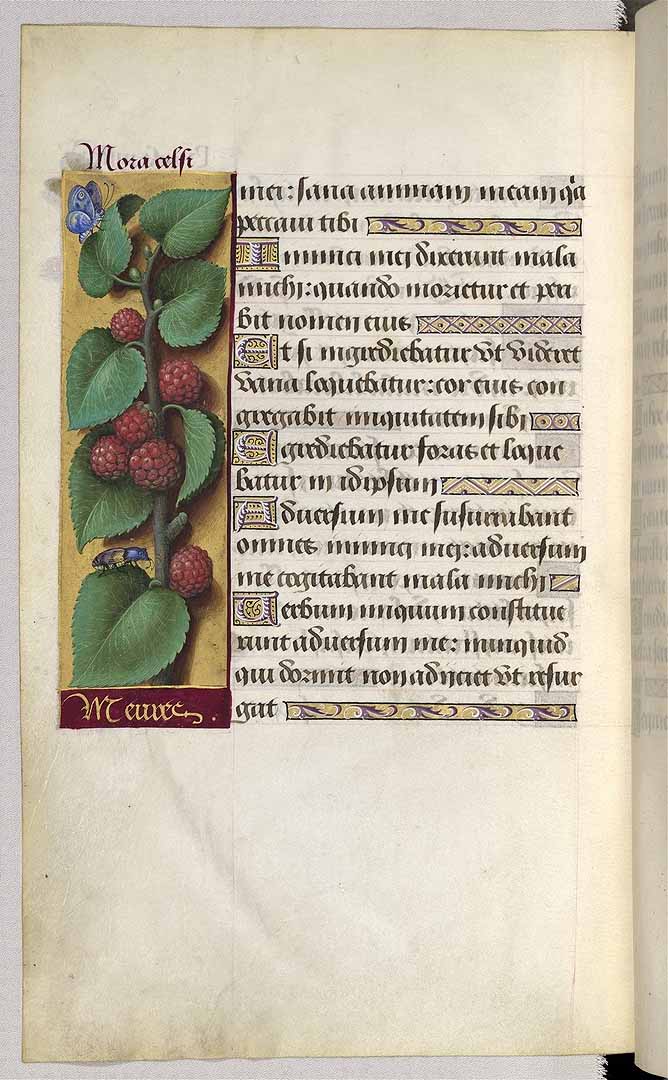 Mora celsi
mei: sana animam meam q̃a
peccaui tibi
Inimici mei dixerunt mala
michi: quando morietur et peri
bit nomen eius
Et si ingrediebatur vt videret
vana loquebatur: cor eius con
gregabit iniquitatem sibi
Egrediebatur foras et loque
batur in idipsum
Aduersum me susurrabant
omnes inimici mei: aduersum
me cogitabant mala michi
Uerbum iniquum constitue
runt aduersum me: nunquid
qui dormit non adijciet vt resur
gat
Meures